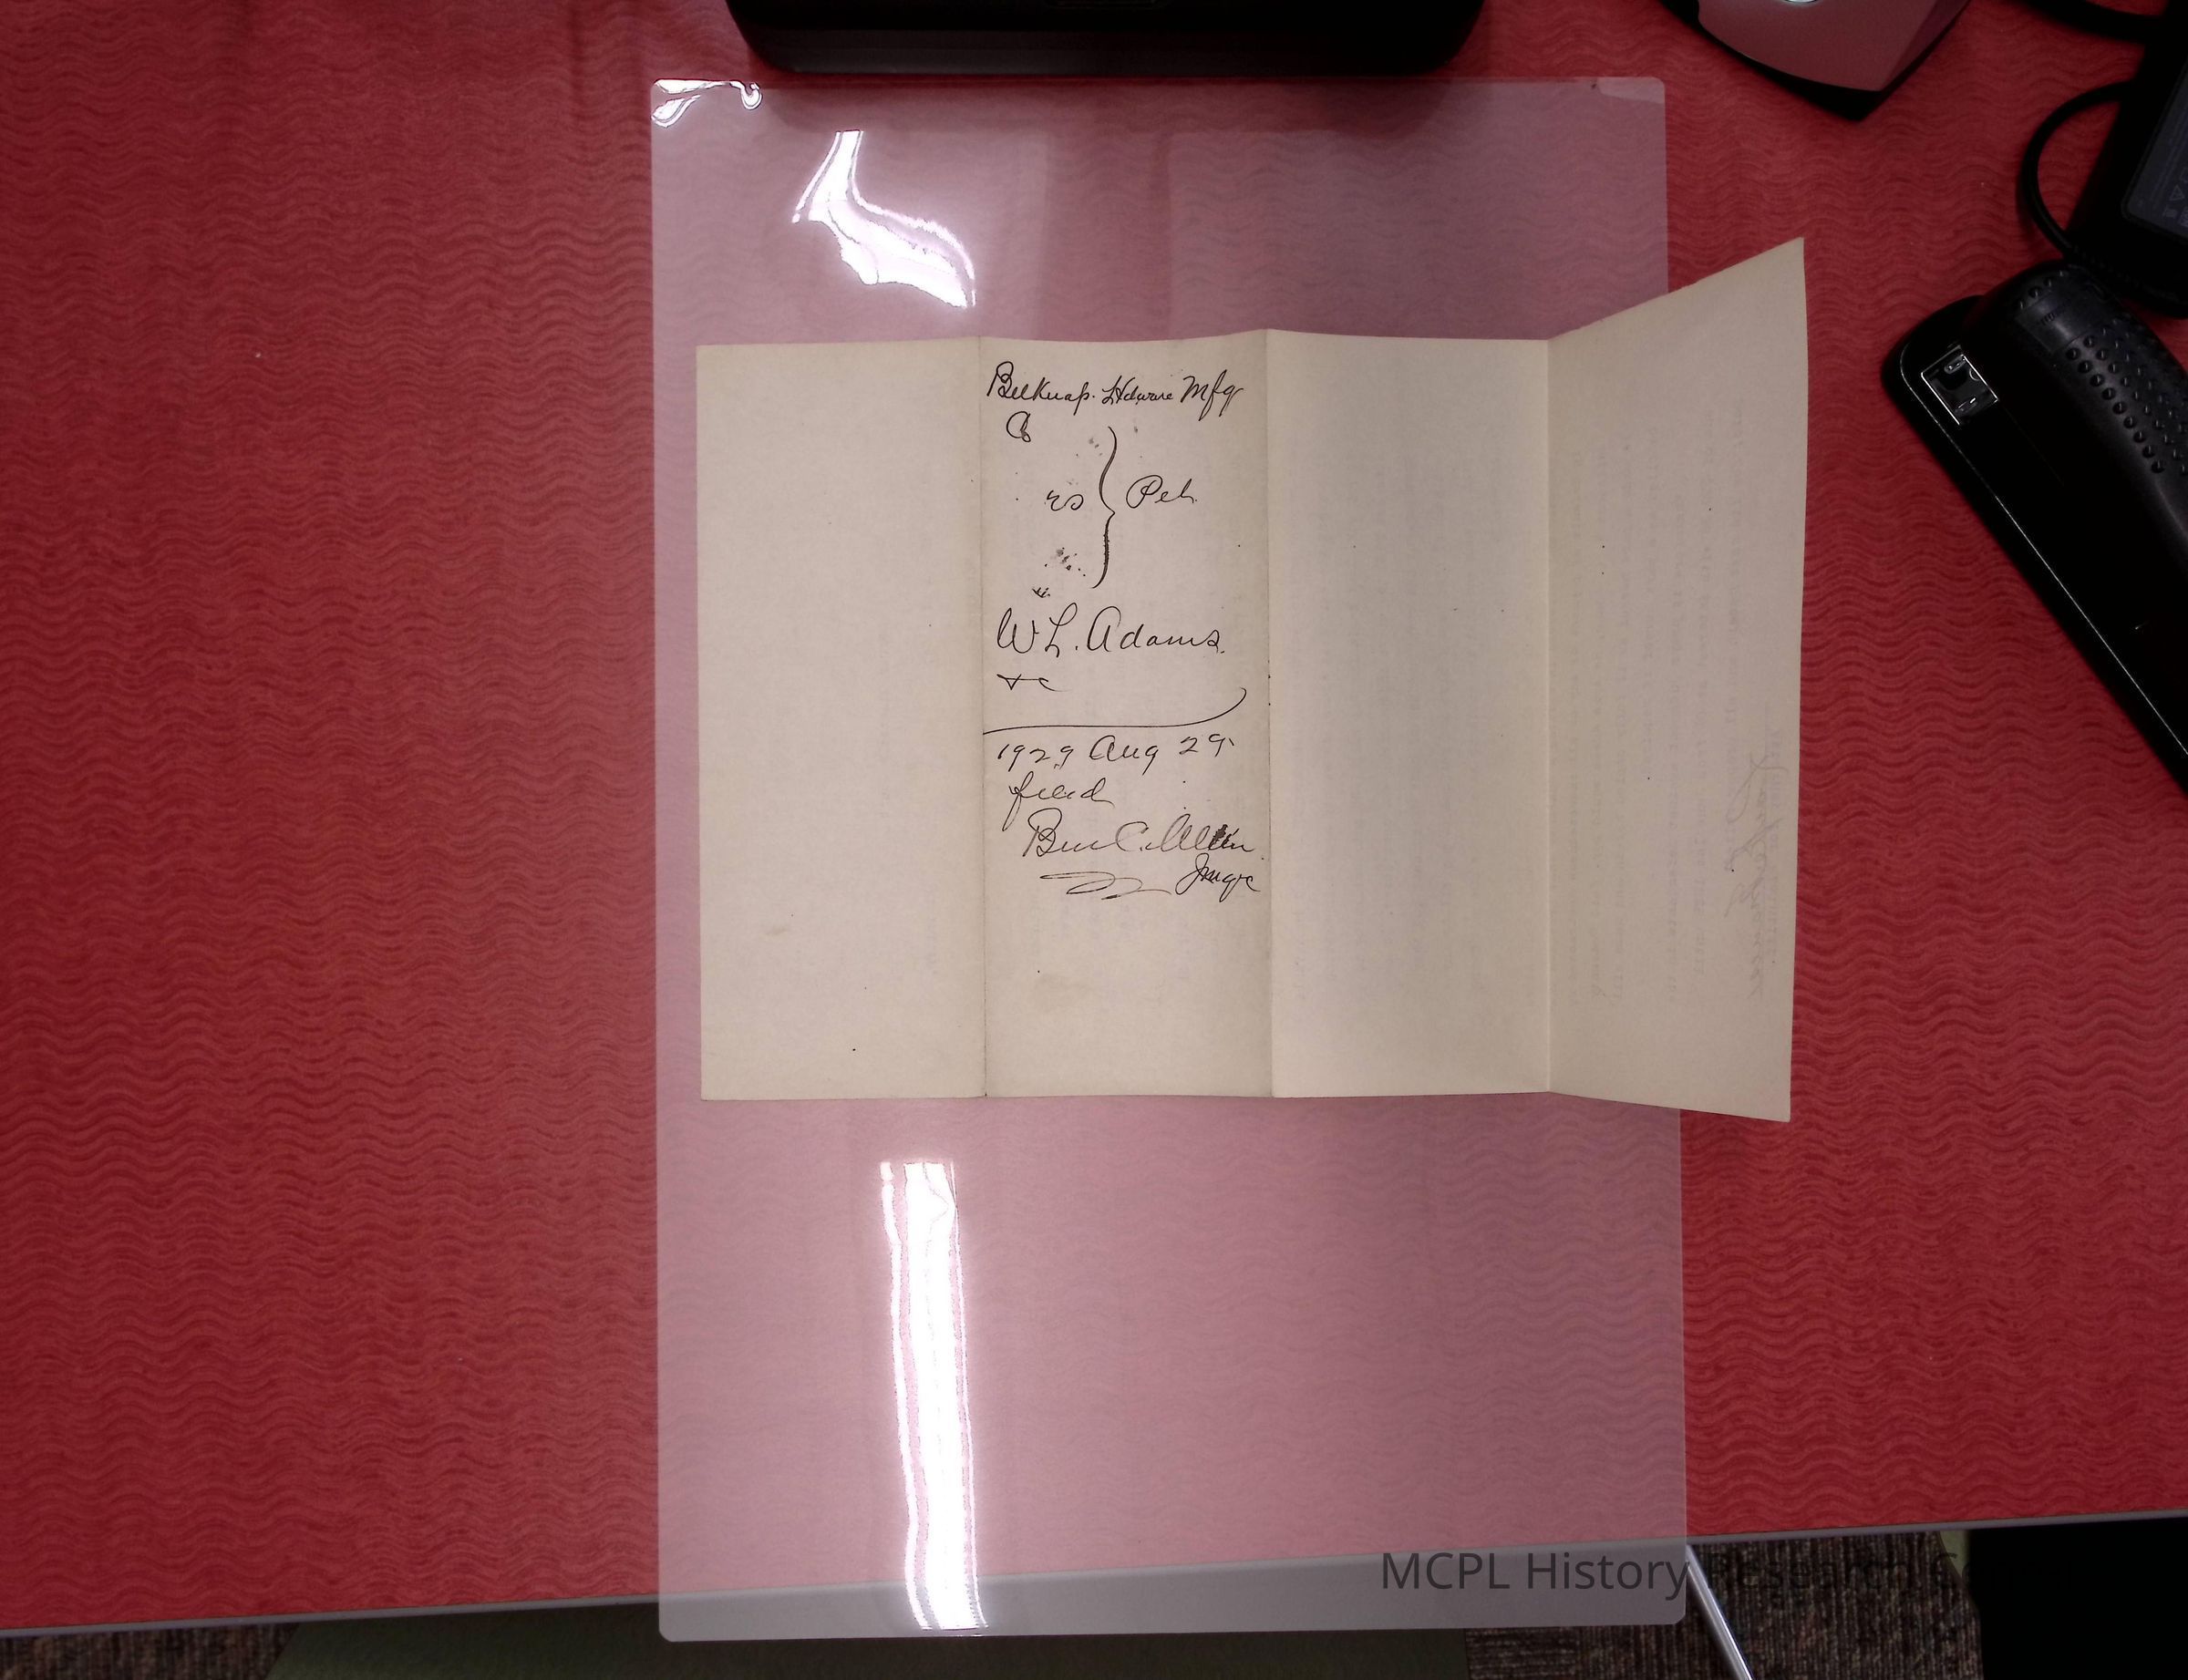 Belknap. Hdware Mfg
Co
vs } Pet.
W L. Adams.
&c
1929 Aug 29
filed
Ben C. Allen
Judge
MCPL History Research